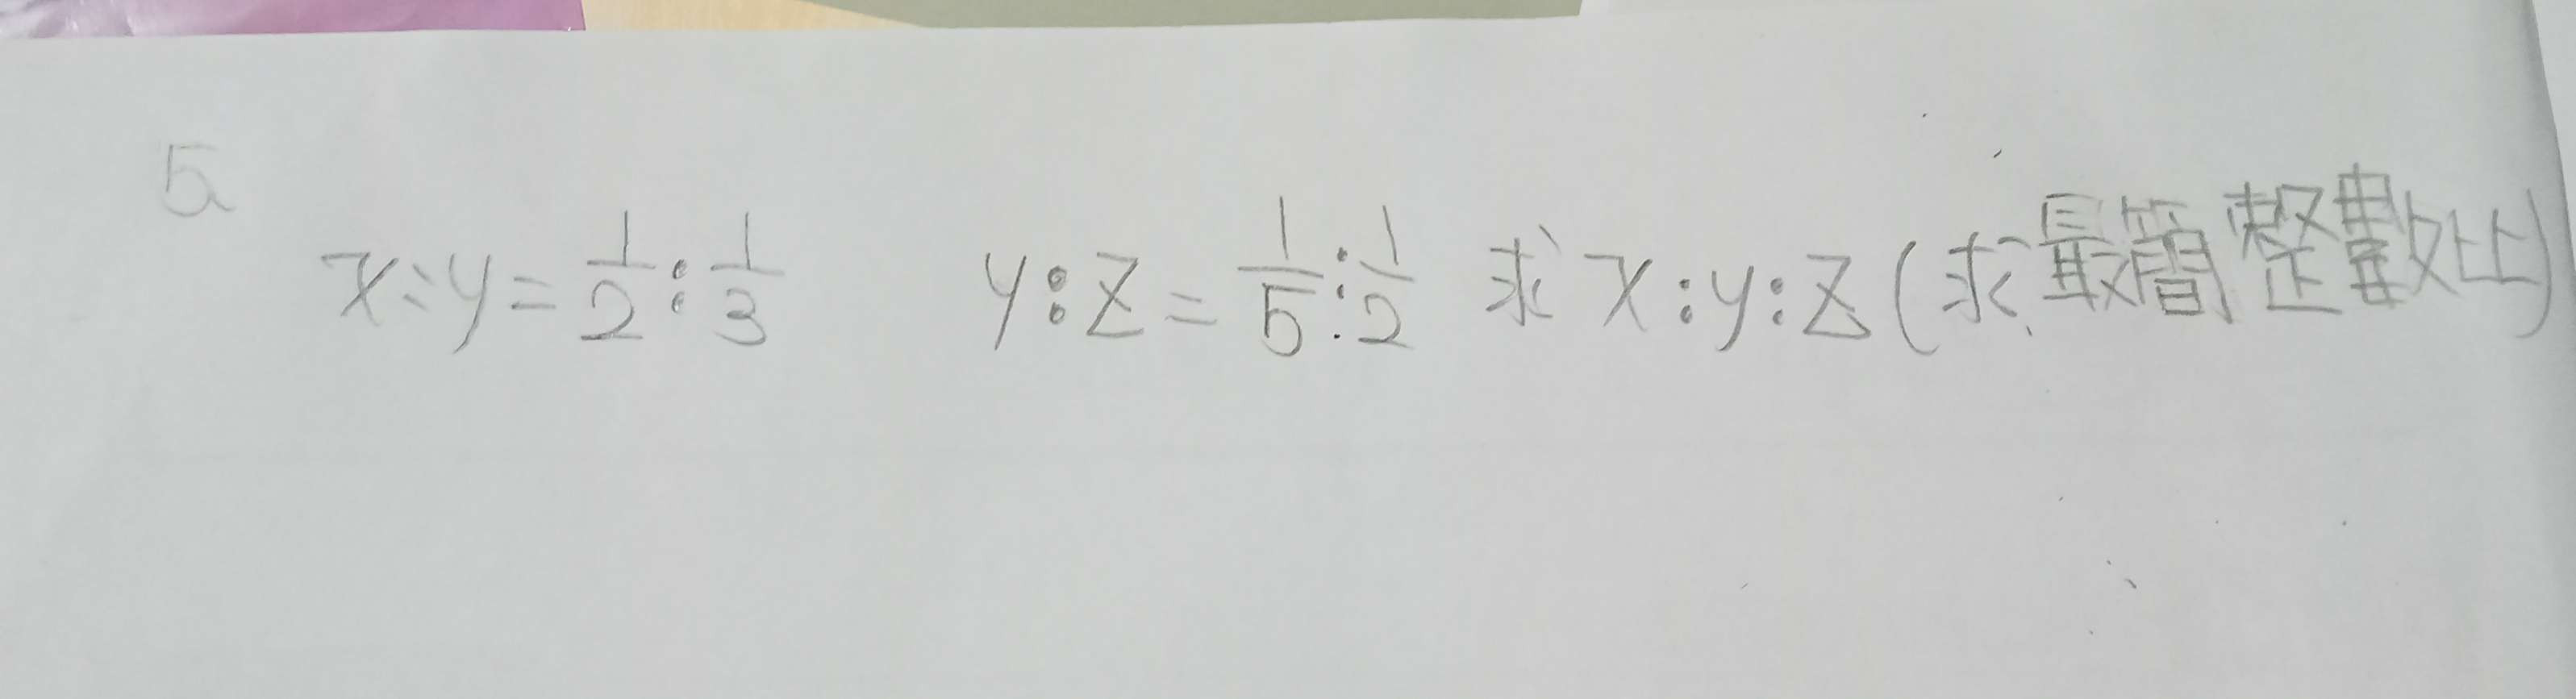 5
x:y=1/2:1/3 y:z=1/5:1/2 求x:y:z(求最簡整數比)